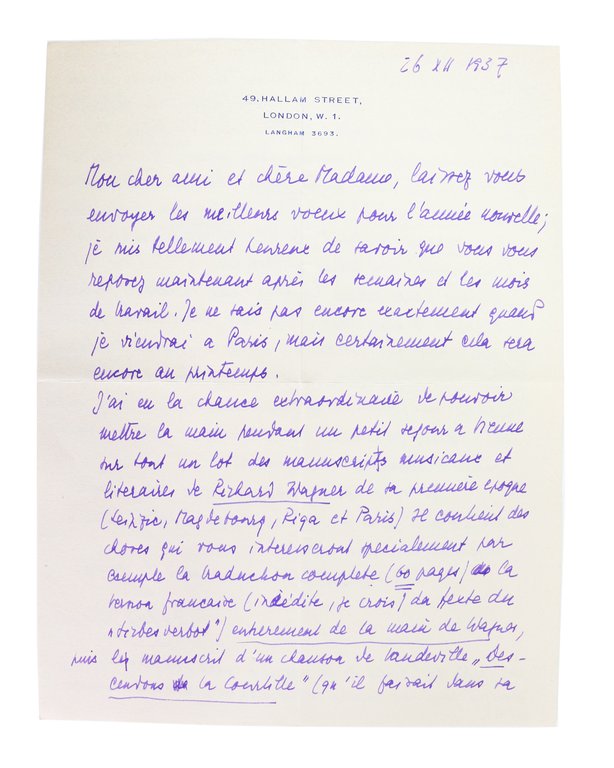 26 XII 1937
49, HALLAM STREET,
LONDON, W. 1.
LANGHAM 3693.
Mon cher ami et chère Madame, laissez vous
envoyer les meilleurs voeux pour l'année nouvelle;
je suis tellement heureux de savoir que vous vous
reposez maintenant après les semaines et les mois
de travail. Je ne sais pas encore exactement quand
je viendrai a Paris, mais certainement cela sera
encore au printemps.
J'ai eu la chance extraordinaire de pouvoir
mettre la main pendant un petit sejour a Vienne
sur tout un lot des manuscripts musicaux et
literaires de Richard Wagner de sa première epoque
(Leipzic, Magdebourg, Riga et Paris) Il contient des
choses qui vous interesseront specialement par
exemple la traduction complete (60 pages) de la
version francaise (inédite, je crois) du texte du
"Liebesverbot") entierement de la main de Wagner,
puis le manuscrit d'un chanson de Vaudeville „Des-
cendons la Courtille" (qu'il faisait dans sa